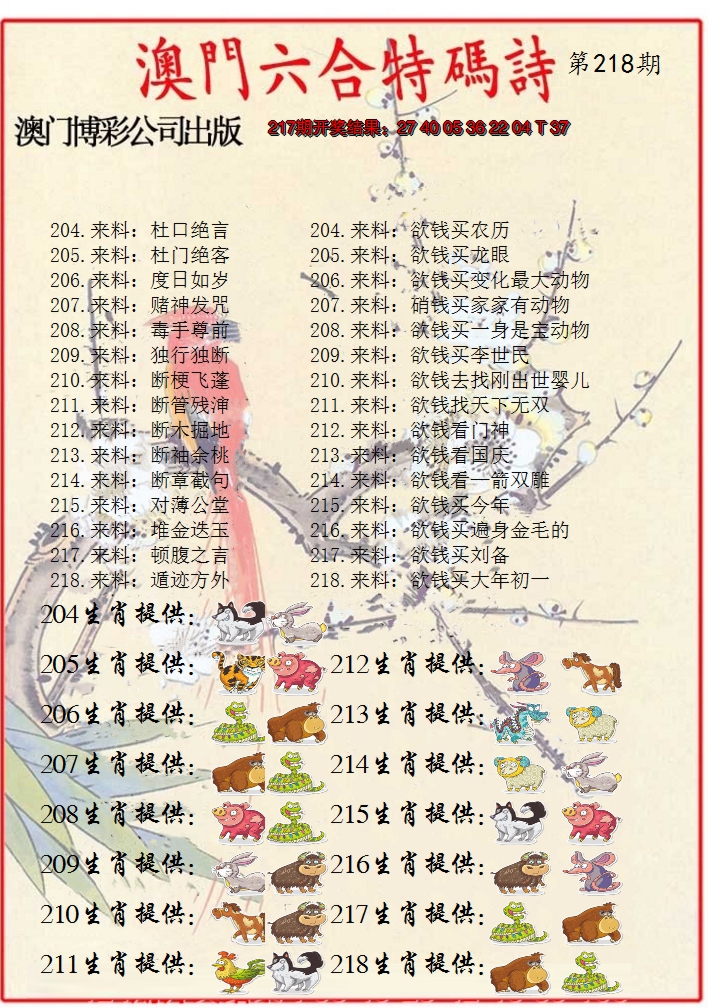 澳門六合特碼詩 第218期
澳门博彩公司出版 217期开奖结果：27 40 05 36 22 04 T 37
204.来料：杜口绝言 204.来料：欲钱买农历
205.来料：杜门绝客 205.来料：欲钱买龙眼
206.来料：度日如岁 206.来料：欲钱买变化最大动物
207.来料：赌神发咒 207.来料：硝钱买家家有动物
208.来料：毒手尊前 208.来料：欲钱买一身是宝动物
209.来料：独行独断 209.来料：欲钱买李世民
210.来料：断梗飞蓬 210.来料：欲钱去找刚出世婴儿
211.来料：断管残渖 211.来料：欲钱找天下无双
212.来料：断木掘地 212.来料：欲钱看门神
213.来料：断袖余桃 213.来料：欲钱看国庆
214.来料：断章截句 214.来料：欲钱看一箭双雕
215.来料：对薄公堂 215.来料：欲钱买今年
216.来料：堆金迭玉 216.来料：欲钱买遍身金毛的
217.来料：顿腹之言 217.来料：欲钱买刘备
218.来料：遁迹方外 218.来料：欲钱买大年初一
204生肖提供：
205生肖提供： 212生肖提供：
206生肖提供： 213生肖提供：
207生肖提供： 214生肖提供：
208生肖提供： 215生肖提供：
209生肖提供： 216生肖提供：
210生肖提供： 217生肖提供：
211生肖提供： 218生肖提供：